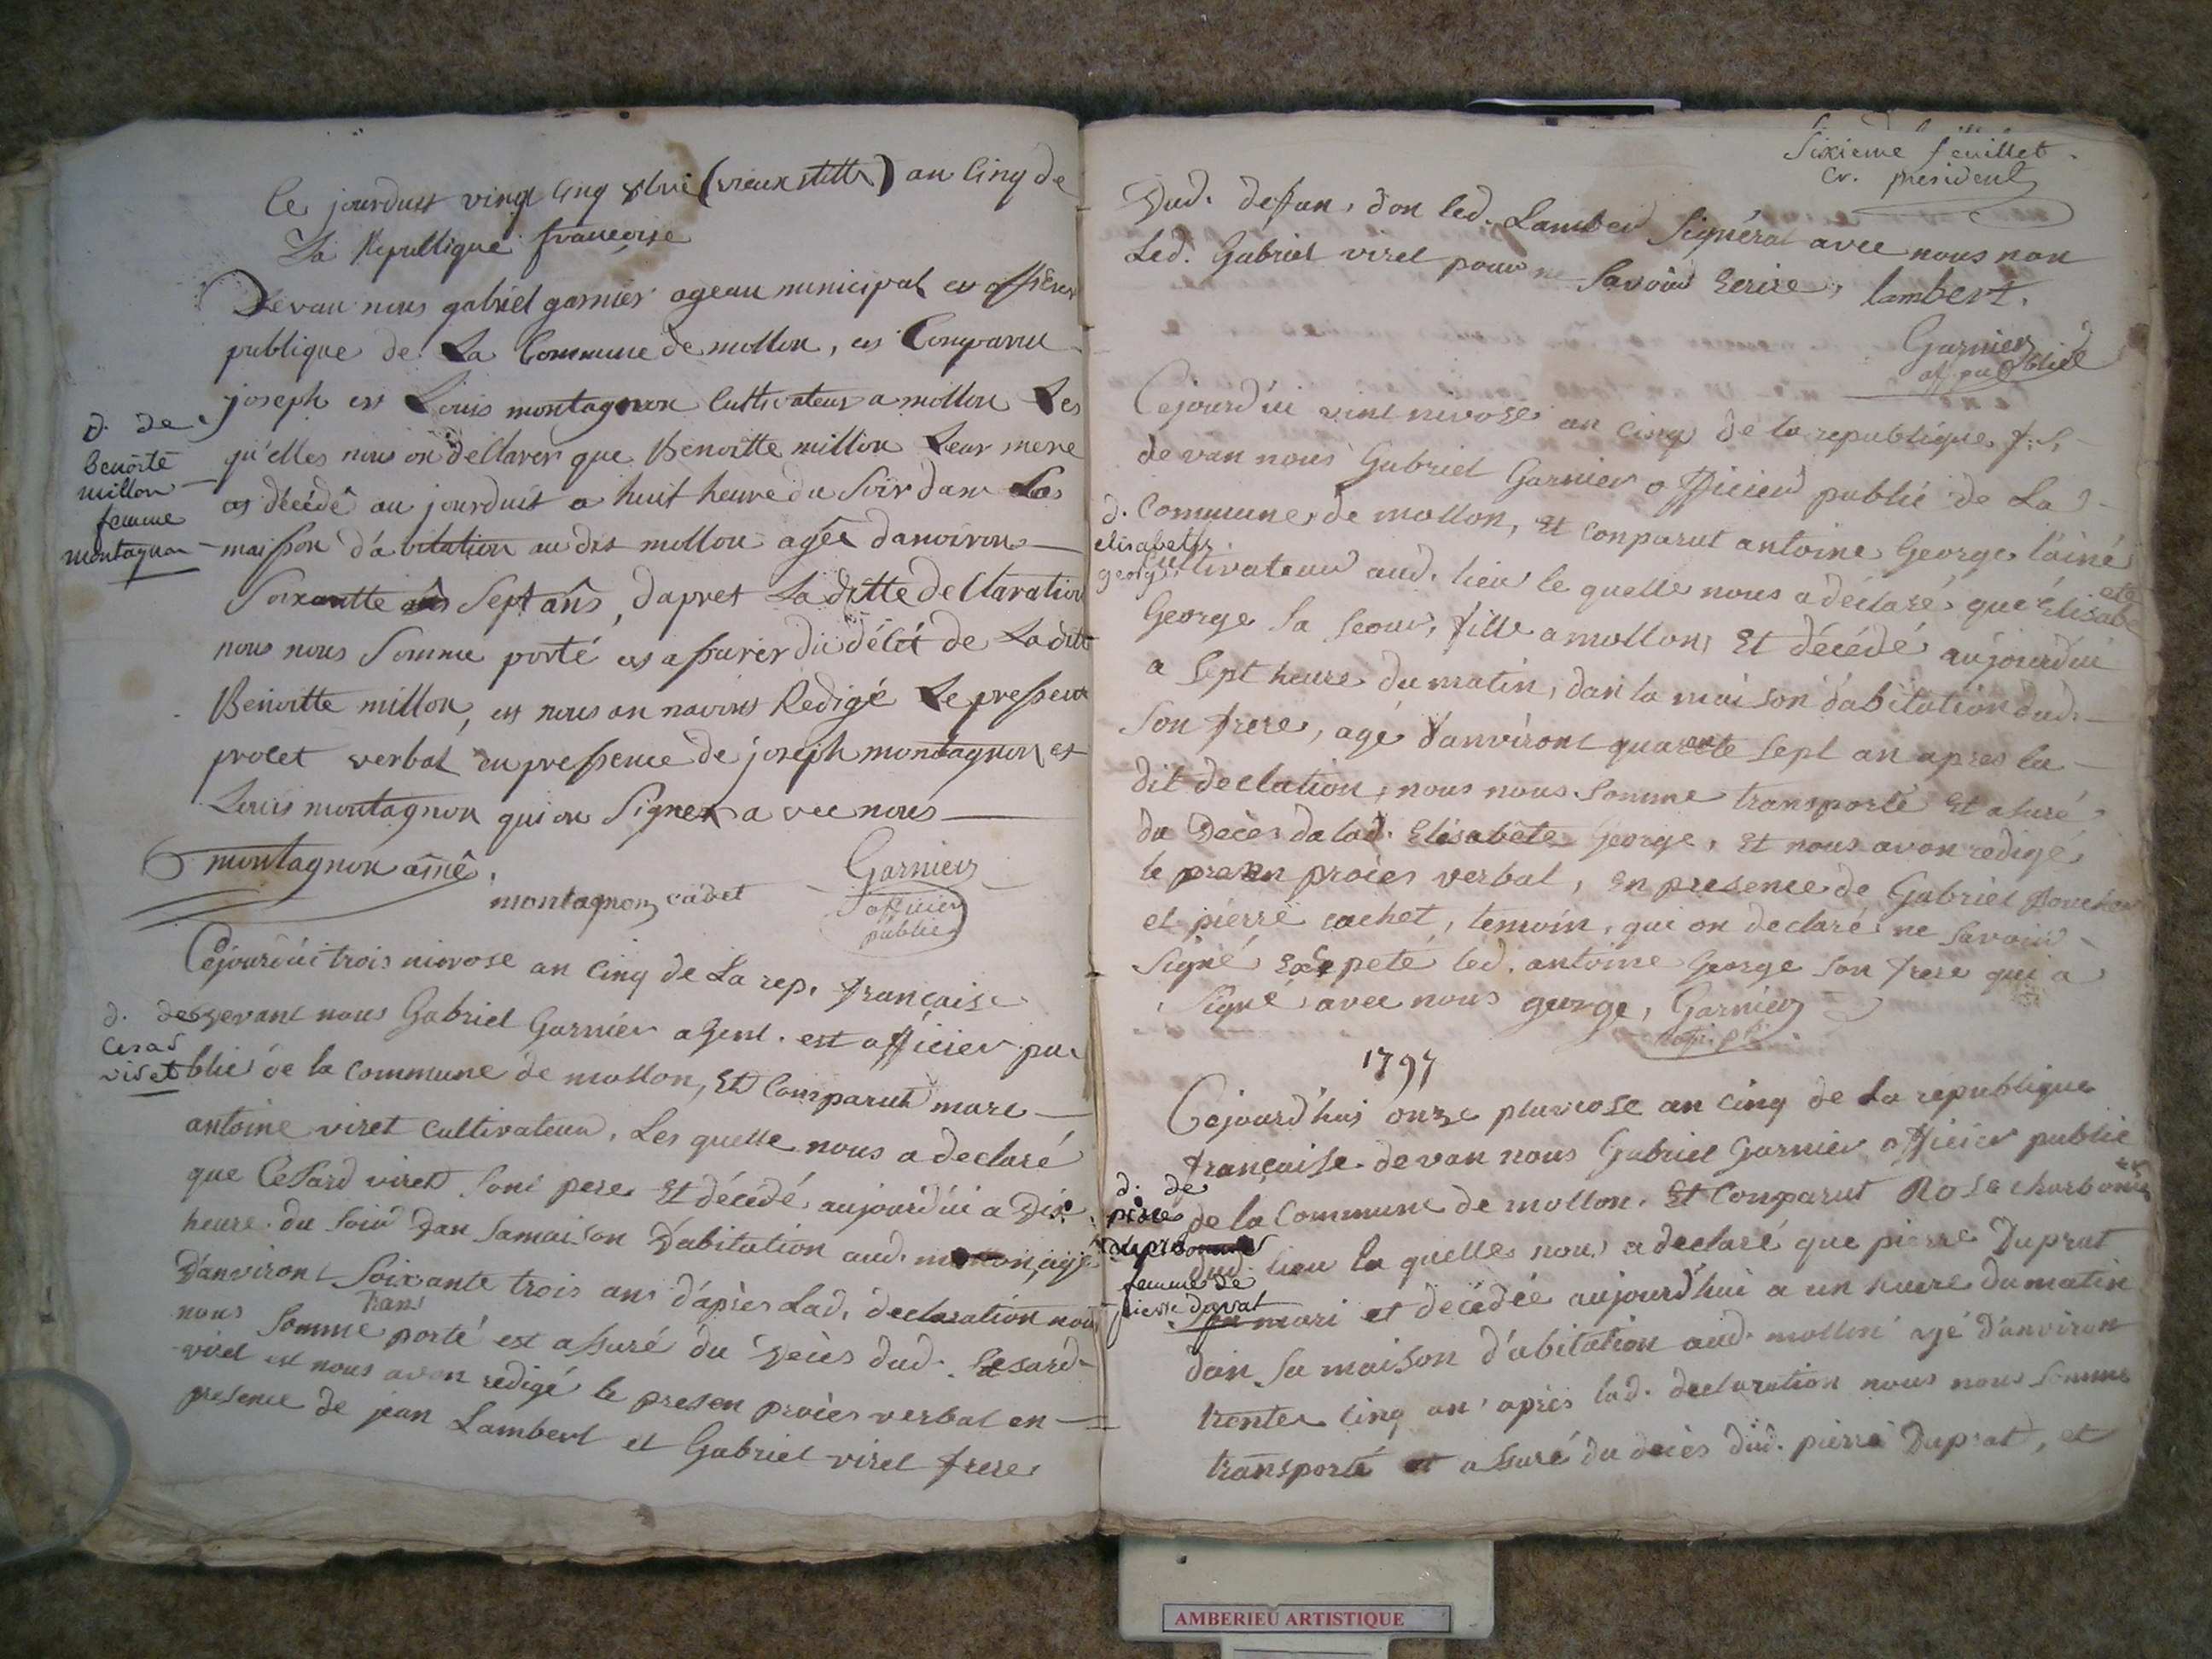 Ce jourduit vingt cinq xbre (vieux stille) au cinq de
La Republique françoise
Devan nous gabriel garnier ageau municipal es officier
publique de La Commune de mollon, es Comparu
joseph es Louis montagnon Cultivateur a mollon Les
d. de
benoite
millon
femme
montagnon
qu'elles nous on declarer que Benoitte millon Leur mere
es décédé au jourduit a huit heure du Soir dans La
maison d'abitation au dit mollon agée danviron
Soixantte Sept ans, dapret La ditte declaration
nous nous Somme porté es assurer du décét de La dit
Benoitte millon, es nous an navons Redigé Le pressent
procet verbal en pressence de joseph montagnon es
Louis montagnon qui on Signer avec nous
montagnon ainé.
montagnon cadet
Garnier
officier
public
Cejourdui trois nivose an cinq de La rep. française
d. de
cesar
viret
devant nous Gabriel Garnier agent. est officier pu
blic de la commune de mollon, Et Comparut marc
antoine viret cultivateur, Les quelle nous a declaré
que Cesard viret Sont pere Et décédé aujourdui a Dix
heure du soir Dan Samaison D'abitation aud. mollon, agé
D'anviront Soixante trois ans d'après Lad. declaration nou
trans
nous Somme porté est assuré du Decès dud. Cesard
viret est nous avon redigé le presen procès verbal en
presence de jean Lambert et Gabriel viret frere
Sixieme feuillet.
cv. president
Dud. deffun, d'on led. Lambert Signérat avec nous non
Led. Gabriel viret pour ne Savoir Ecrire, lambert.
Garnier
of. public
Cejourd'ui vint nivose an cinq de la republique f.s.
devan nous Gabriel Garnier officier public de La
d.
elisabeth
george
Commune de mollon, Et conparut antoine George l'ainé
Cultivateur aud. lieu le quelle nous a déclaré que Elisabe
ete
George sa seour, fille a mollon, Et décédé aujourdui
a Sept heure du matin, dan la maison d'abitation dud.
Son frere, agé d'anviront quarente Sept an apres la
dit declation, nous nous Somme transporté Et asuré
du Decès da lad. Elisabete George, Et nous avon redigé
le presen procès verbal, En presence de Gabriel
et pierre cachet, temoin, qui on declaré ne savoir
Signé Exepeté led. antoine George son frere qui a
Signé avec nous george, Garnier
1797
Cejourd'hui onze pluviose an cinq de La république
française. devan nous Gabriel Garnier officier public
d. de
piere
femme de
pierre duprat
de la Commune de mollon. Et Comparut Rose charbonnier
dud. lieu la quelle nous a declaré que pierre Duprat
Son mari et décédée aujourd'hui a un heure du matin
dan Sa maison d'abitation aud. mollon agé d'anviron
trente cinq an après lad. declaration nous nous Somme
transporté et assuré du decès dud. pierre Duprat, et
AMBERIEU ARTISTIQUE